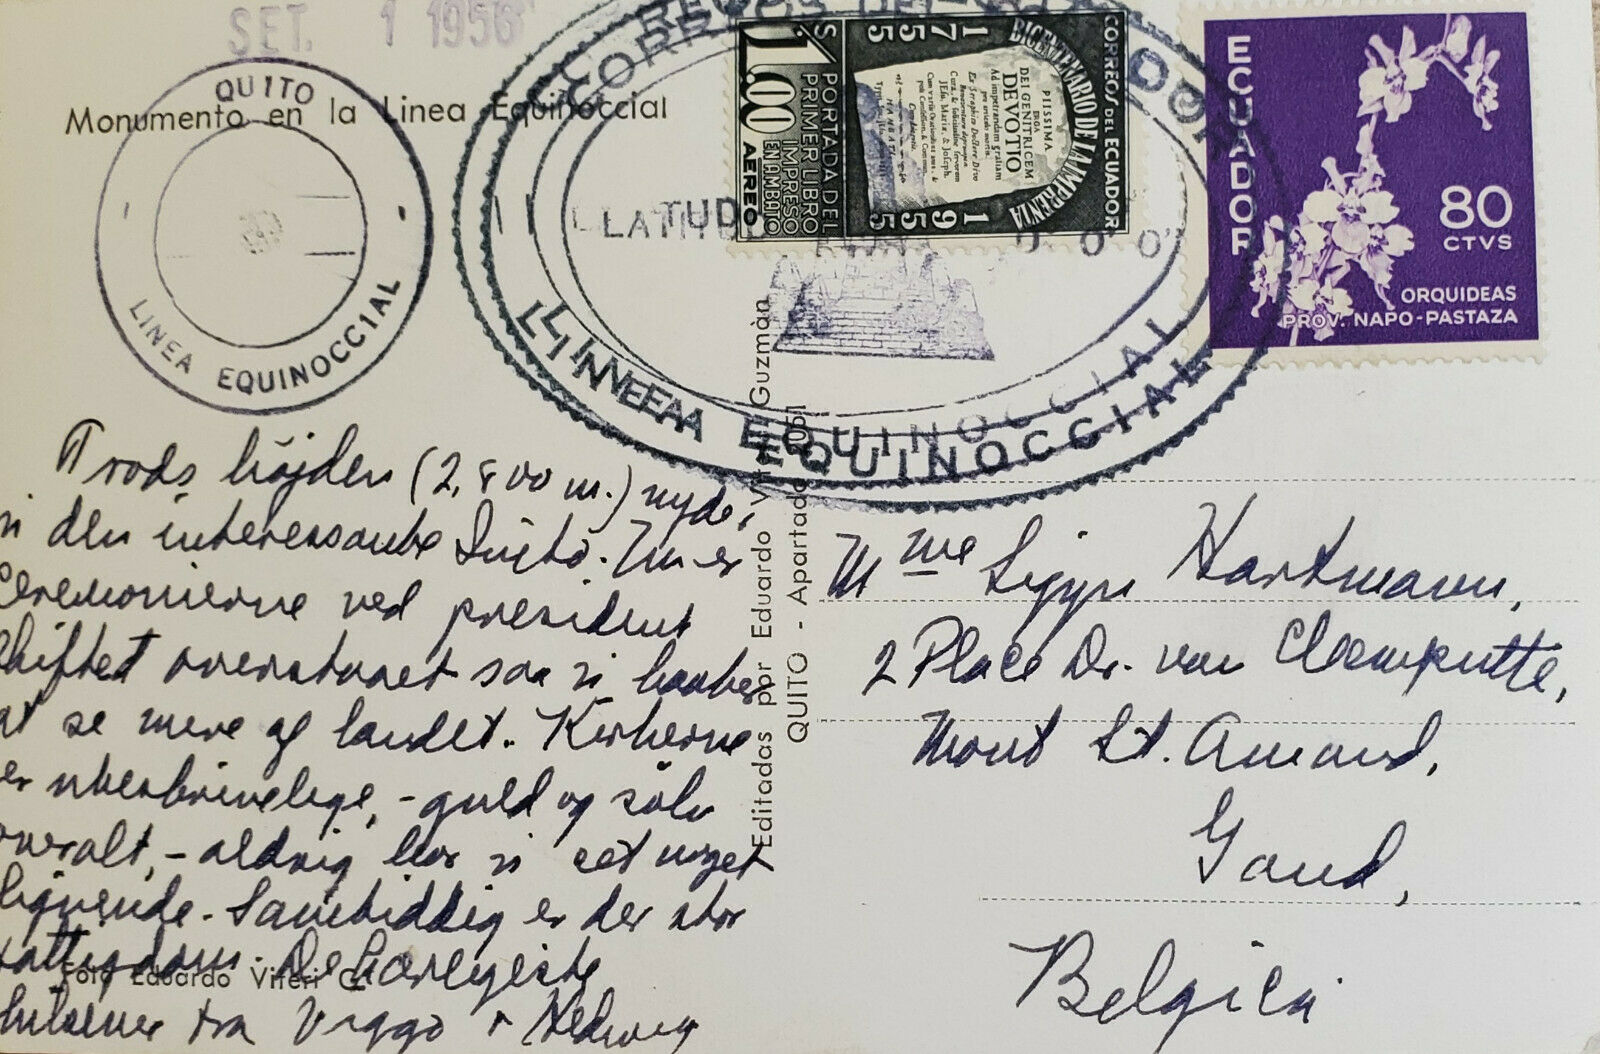 SET. 1 1956
QUITO
LINEA EQUINOCCIAL
Monumento en la Linea Equinoccial
CORREOS DEL ECUADOR
LATITUD 0° 0' 0"
LINEA EQUINOCCIAL
CORREOS DEL ECUADOR
BICENTENARIO DE LA IMPRENTA
1755
1955
PIISSIMA
ERGA
DEI GENITRICEM
DEVOTIO
Ad impetrandam gratiam
pro articulo mortis.
PORTADA DEL
PRIMER LIBRO
IMPRESO
EN AMBATO
S/. 1.00
AEREO
ECUADOR
80
CTVS
ORQUIDEAS
PROV. NAPO-PASTAZA
Trods højden (2,800 m.) nyder
vi den interessante Quito. Nu er
Ceremonierne ved president
skiftet overstaaet saa vi haaber
at se mere af landet. Kirkerne
er ubeskrivelige, - guld og sølv
overalt, - aldrig har vi set noget
lignende. Samtiddig er der stor
fattigdom. De hjerteligste
hilsener fra Viggo & Hedwig
Foto Eduardo Viteri G.
Editadas por Eduardo Viteri Guzmàn
QUITO - Apartado 2051
Mme Sigyn Hartmann,
2 Place Dr. van Cleemputte,
Mont St. Amand,
Gand,
Belgica